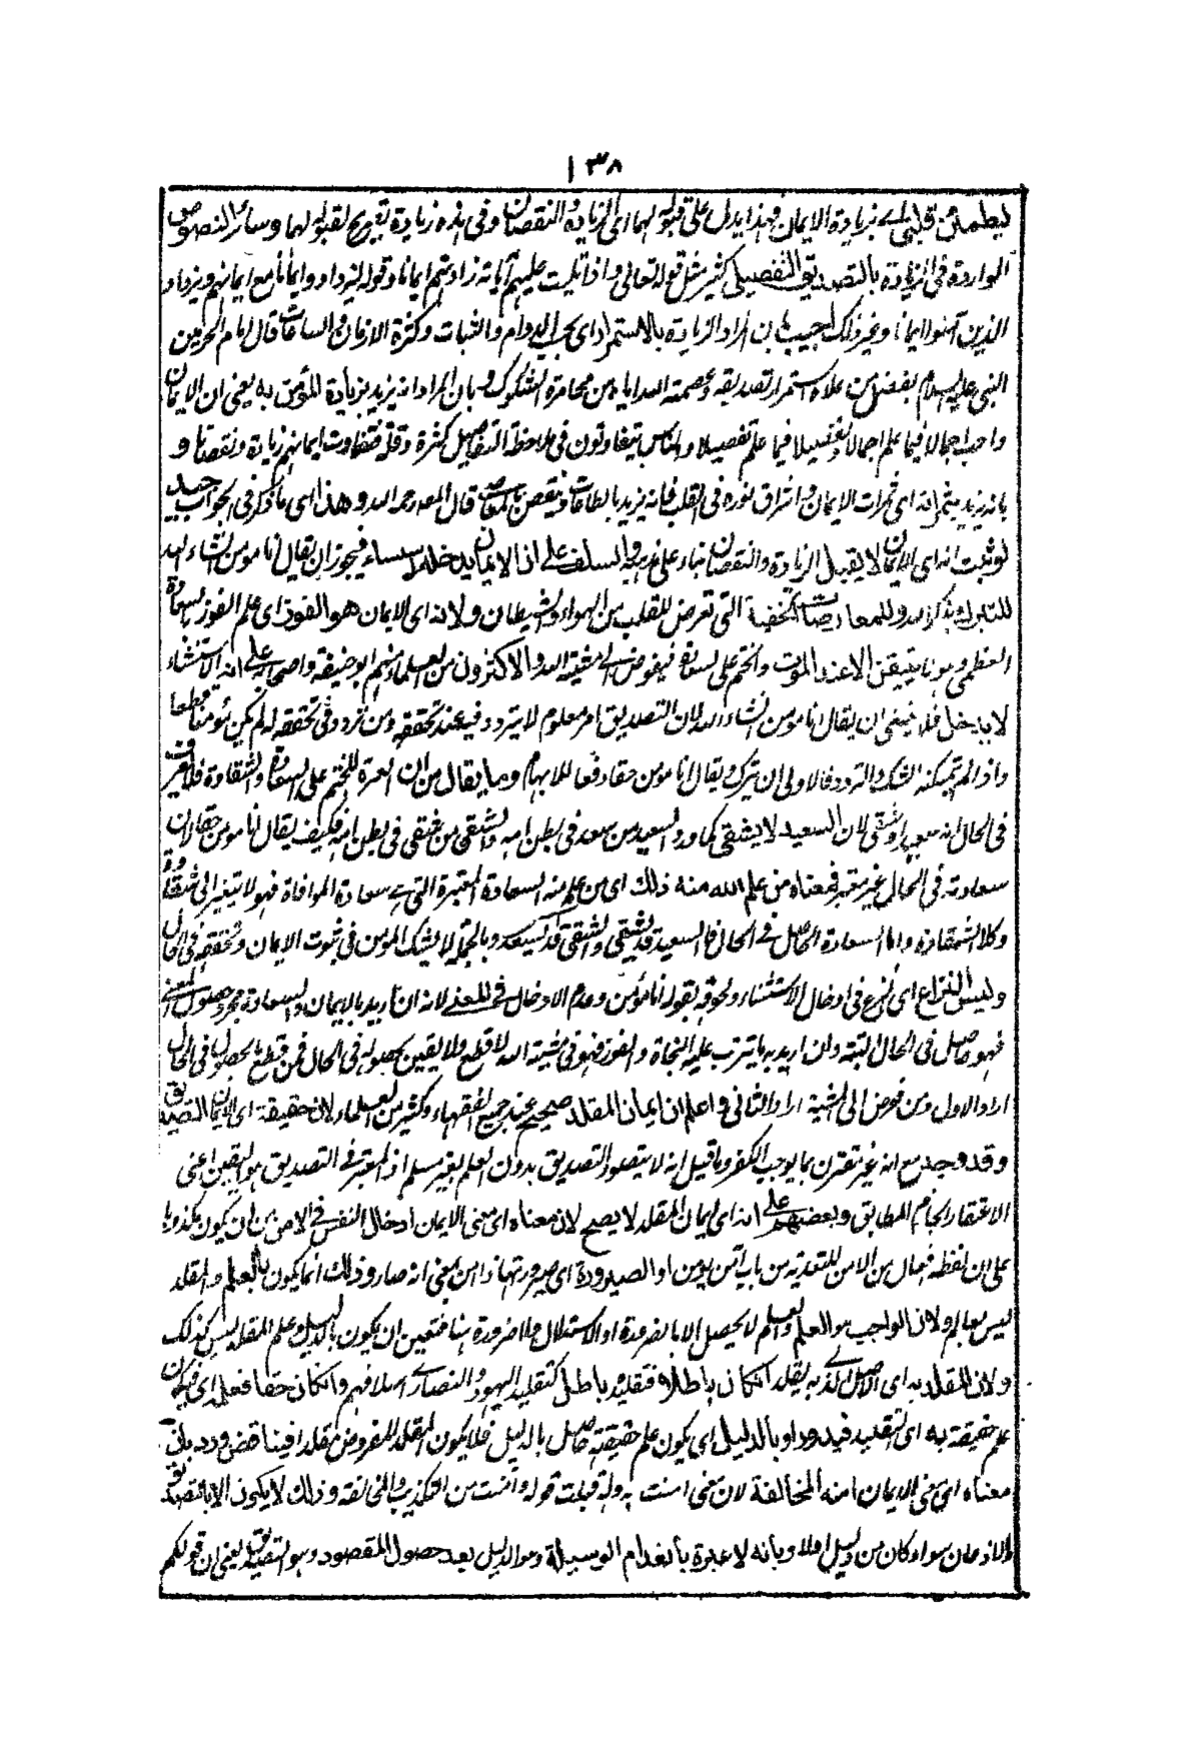 ١٣٨
ليطمئن قلبى اے بزيادة الايمان فهذا يدل على قبوله لهما اى الزيادة والنقصان وفى هذه زيادة تصريح لقبوله لهما وسائر النصوص
الواردة فى الزيادة بالتصديق التفصيلى كثير مثل قوله تعالى واذا تليت عليهم آياته زادتهم ايمانا وقوله ليزدادوا ايمانا مع ايمانهم ويزداد
الذين آمنوا ايمانا وغير ذلك اجيب بان المراد الزيادة بالاستمرار اى بحسب الدوام والثبات وكثرة الازمان والساعات قال امام الحرمين
النبى عليه السلام يفضل من عداه باستمرار تصديقه وعصمة الله اياه من مخامرة الشكوك وبان المراد انه يزيد بزيادة المؤمن به يعنى ان الايمان
واجب اجمالا فيما علم اجمالا وتفصيلا فيما علم تفصيلا والناس يتفاوتون فى ملاحظة التفاصيل كثرة وقلة فتفاوت ايمانهم زيادة ونقصانا و
بانه يزيد بثمراته اى ثمرات الايمان واشراق نوره فى القلب فانه يزيد بالطاعات وينقص بالمعاصى قال المص رحمه الله وهذا اى ما ذكر فى الجواب جيد
لو ثبت انه اى الايمان لا يقبل الزيادة والنقصان بناء على مذهب السلف على ان الايمان يدخله فيجوز ان يقال انا مومن ان شاء الله
للتبرك بذكر الله وللمعارضات الخفية التى تعرض للقلب من الهواء والشيطان ولانه اى الايمان هو الفوز اى علم الفوز بالسعادة
العظمى وهو لا يتيقن الا عند الموت والختم على السعادة فيفوض الى مشية الله والاكثرون من العلماء ومنهم ابو حنيفة واصحابه على انه الاستثناء
لا يدخل فلا ينبغى ان يقال انا مومن ان شاء الله لان التصديق امر معلوم لا يتردد فيه عند تحققه ومن تردد فى تحققه له لم يكن مؤمنا قطعا
واذا لم يمكنه الشك والتردد فالاولى ان يترك ويقال انا مومن حقا دفعا للابهام وما يقال من ان العبرة للختم على السعادة والشقاوة فلا يعرف
فى الحال انه سعيد او شقى لان السعيد لا يشقى كما ورد السعيد من سعد فى بطن امه والشقى من شقى فى بطن امه فكيف يقال انا مومن حقا وان
سعادته فى الحال غير معتبر فمعناه من علم الله منه ذلك اى من علم منه السعادة المعتبرة التى هے سعادة الموافاة فهو لا يتغير الى شقاوة
وكذا الشقاوة واما السعادة الحاصل فے الحال فالسعيد قد يشقى والشقى قد يسعد وبالجملة لا يشك المؤمن فى ثبوت الايمان وتحققه فى الحال
وليس النزاع اى نزاع فى ادخال الاستثناء ولحوقه بقوله انا مؤمن وعدم الادخال فے المعنے لانه ان اريد بالايمان والسعادة مجرد حصول المعنے
فهو حاصل فى الحال البتة وان اريد به ما يترتب عليه النجاة والفوز فهو فى مشية الله لا قطع ولا يقين بحصوله فى الحال فمن قطع بالحصول فى الحال
اراد الاول ومن فوض الى المشية اراد الثانى واعلم ان ايمان المقلد صحيح عند جميع الفقهاء وكثير من العلماء لان حقيقته اى الايمان التصديق
وقد وجد مع انه غير مقترن بما يوجب الكفر وما قيل انه لا يتصور التصديق بدون العلم بغير مسلم اذ المعتبر فے التصديق هو اليقين اعنى
الاعتقاد الجازم المطابق وبعضهم على انه اى ايمان المقلد لا يصح لان معناه اى معنى الايمان ادخال النفس فے الامن من ان يكون مكذوبا
على ان لفظه افعال من الامن للتعدية من باب آمن يومن او الصيرورة اى صيرورتها ذا امن بمعنى انه صار وذلك انما يكون بالعلم والمقلد
ليس بعالم ولان الواجب هو العلم والعلم لا يحصل الا بالضرورة او الاستدلال ولا ضرورة هنا فتعين ان يكون بالدليل وعلم المقلد ليس كذلك
ولان المقلد به اى الاصل الذے به يقلد ان كان باطلا فتقليده باطل كتقليد اليهود والنصارے اسلافهم وان كان حقا فعلمه اى فيكون
علم حقيقته به اى التقليد فيدور او بالدليل اى يكون علم حقيقته حاصل بالدليل فلا يكون المقلد المفروض مقلدا فيناقض ورد بان
معناه اى معنى الايمان امنه المخالفة لان معنى امنت به وله قبلت قوله وآمنت من التكذيب والمخالفة وذلك لا يكون الا بالتصديق
والاذعان سواء كان من دليل او لا وبانه لا عبرة بانعدام الوسيلة وهو الدليل بعد حصول المقصود وهو التصديق يعنى ان قولكم